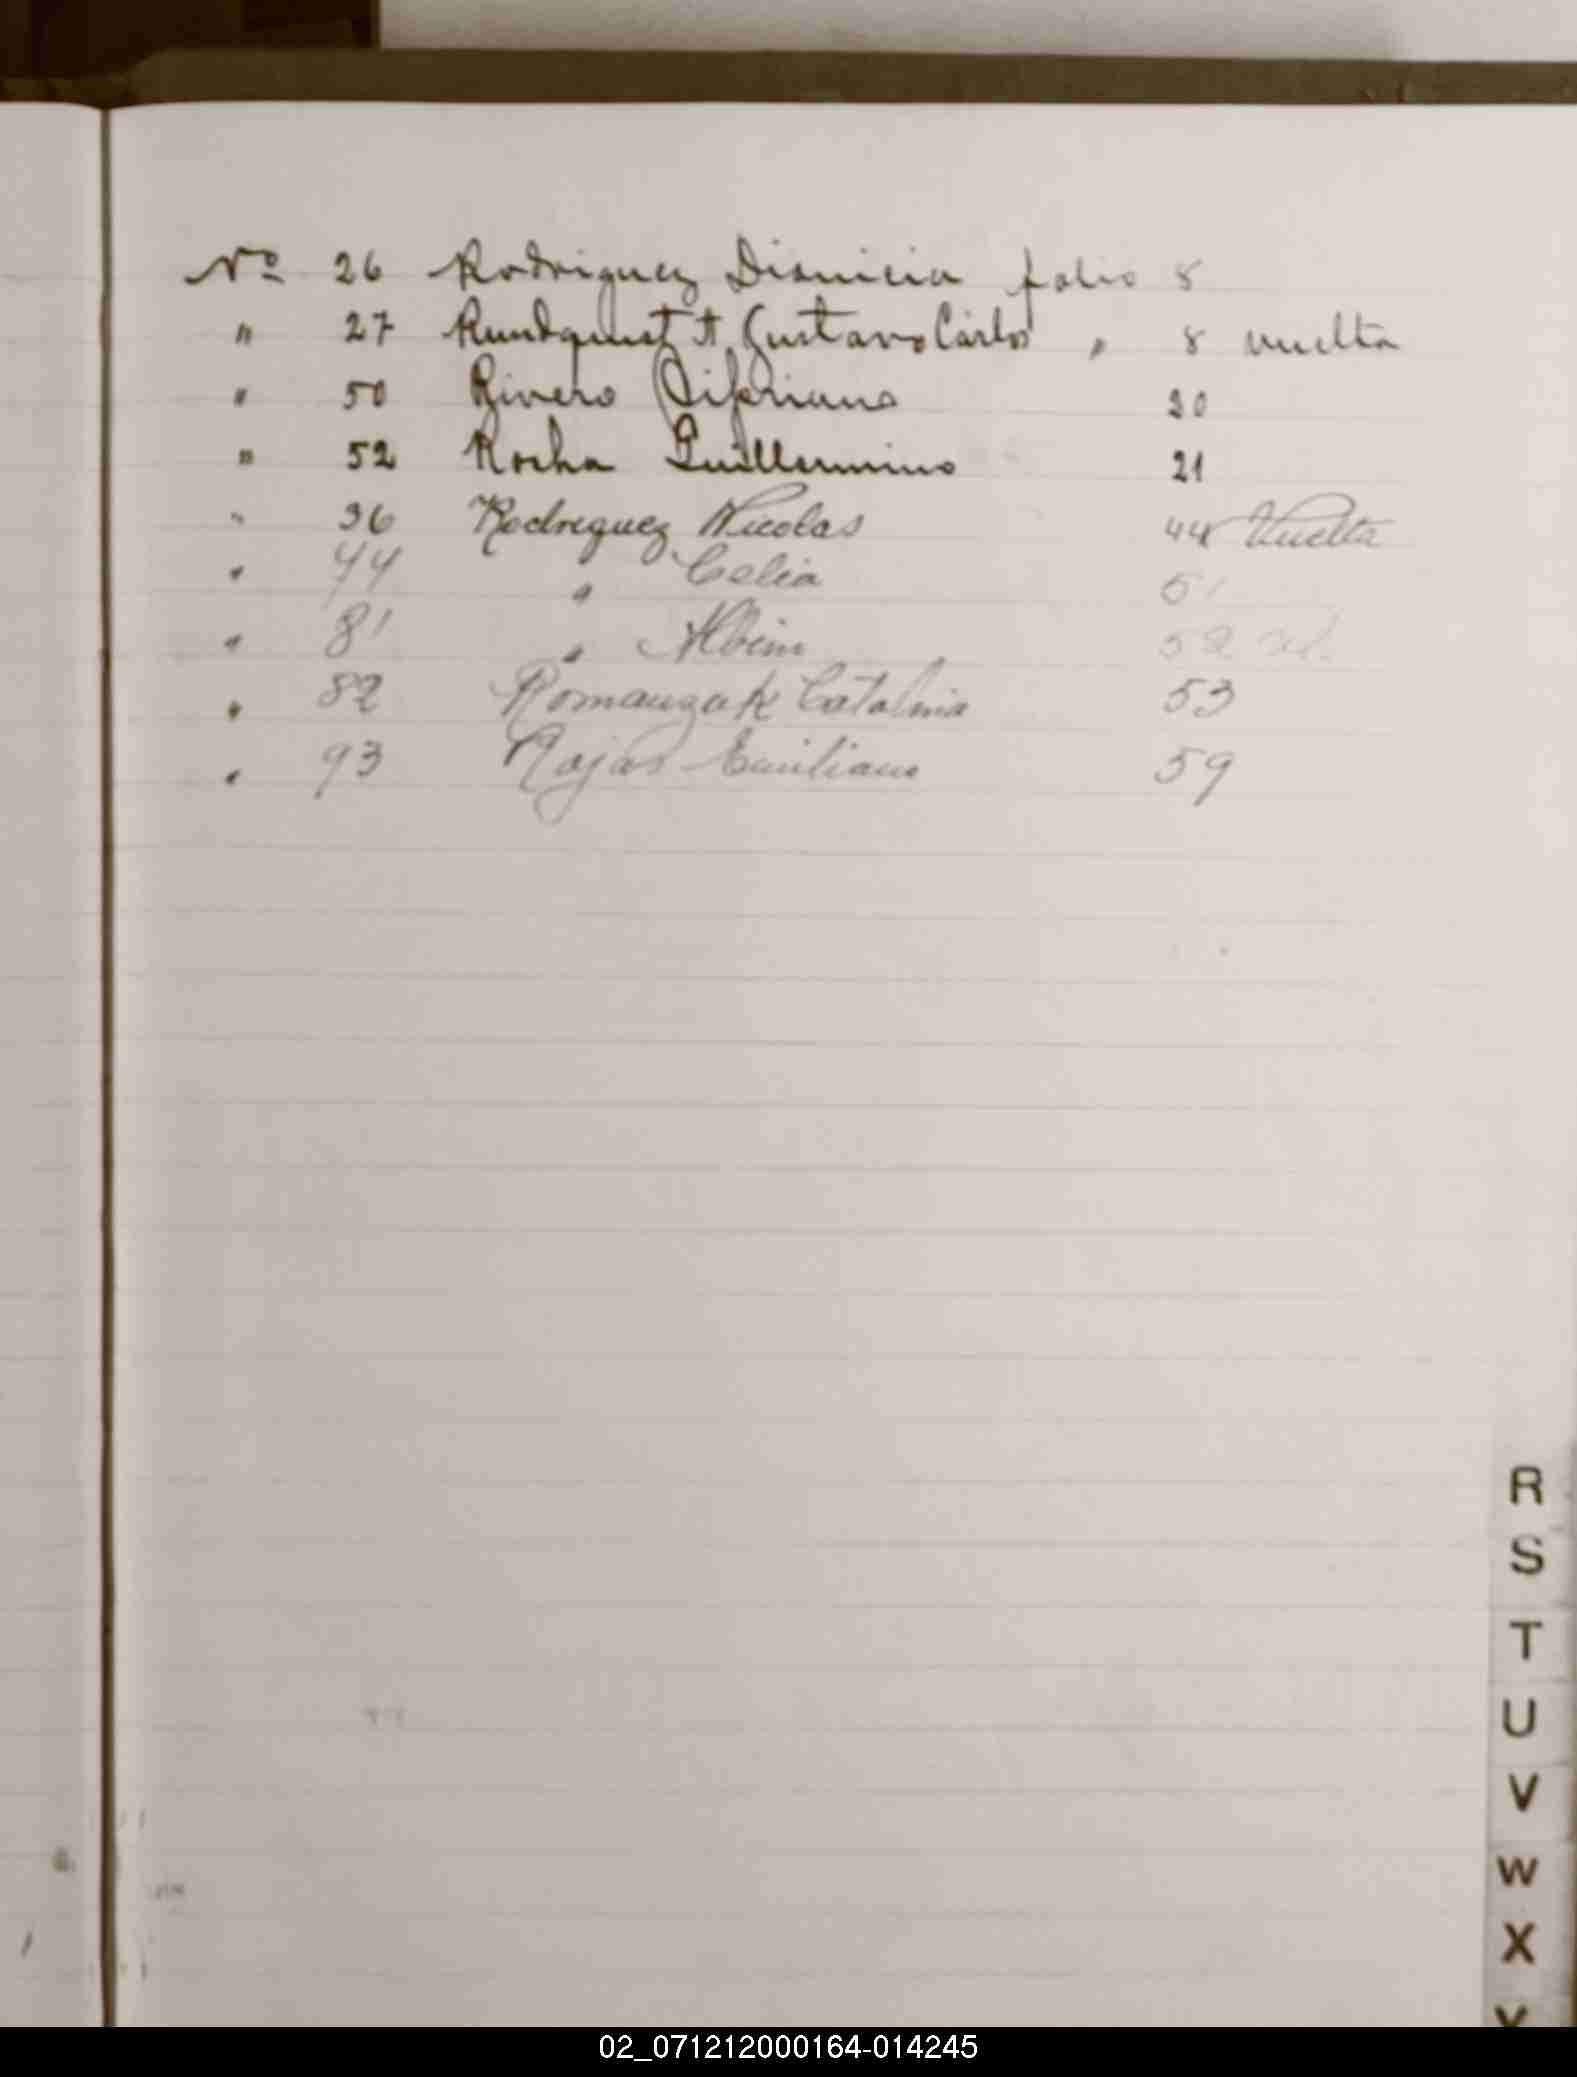 Nº 26 Rodriguez Dionicia folio 8
" 27 Rundquist A. Gustavo Carlos " 8 vuelta
" 50 Rivero Cipriano 20
" 52 Rocha Guillermino 21
" 36 Rodreguez Nicolas 44 Vuelta
" 44 " Celia 51
" 81 " Albino 52
" 82 Romanzuk Catalina 53
" 93 Rojas Emiliano 59
R
S
T
U
V
W
X
Y
02_071212000164-014245